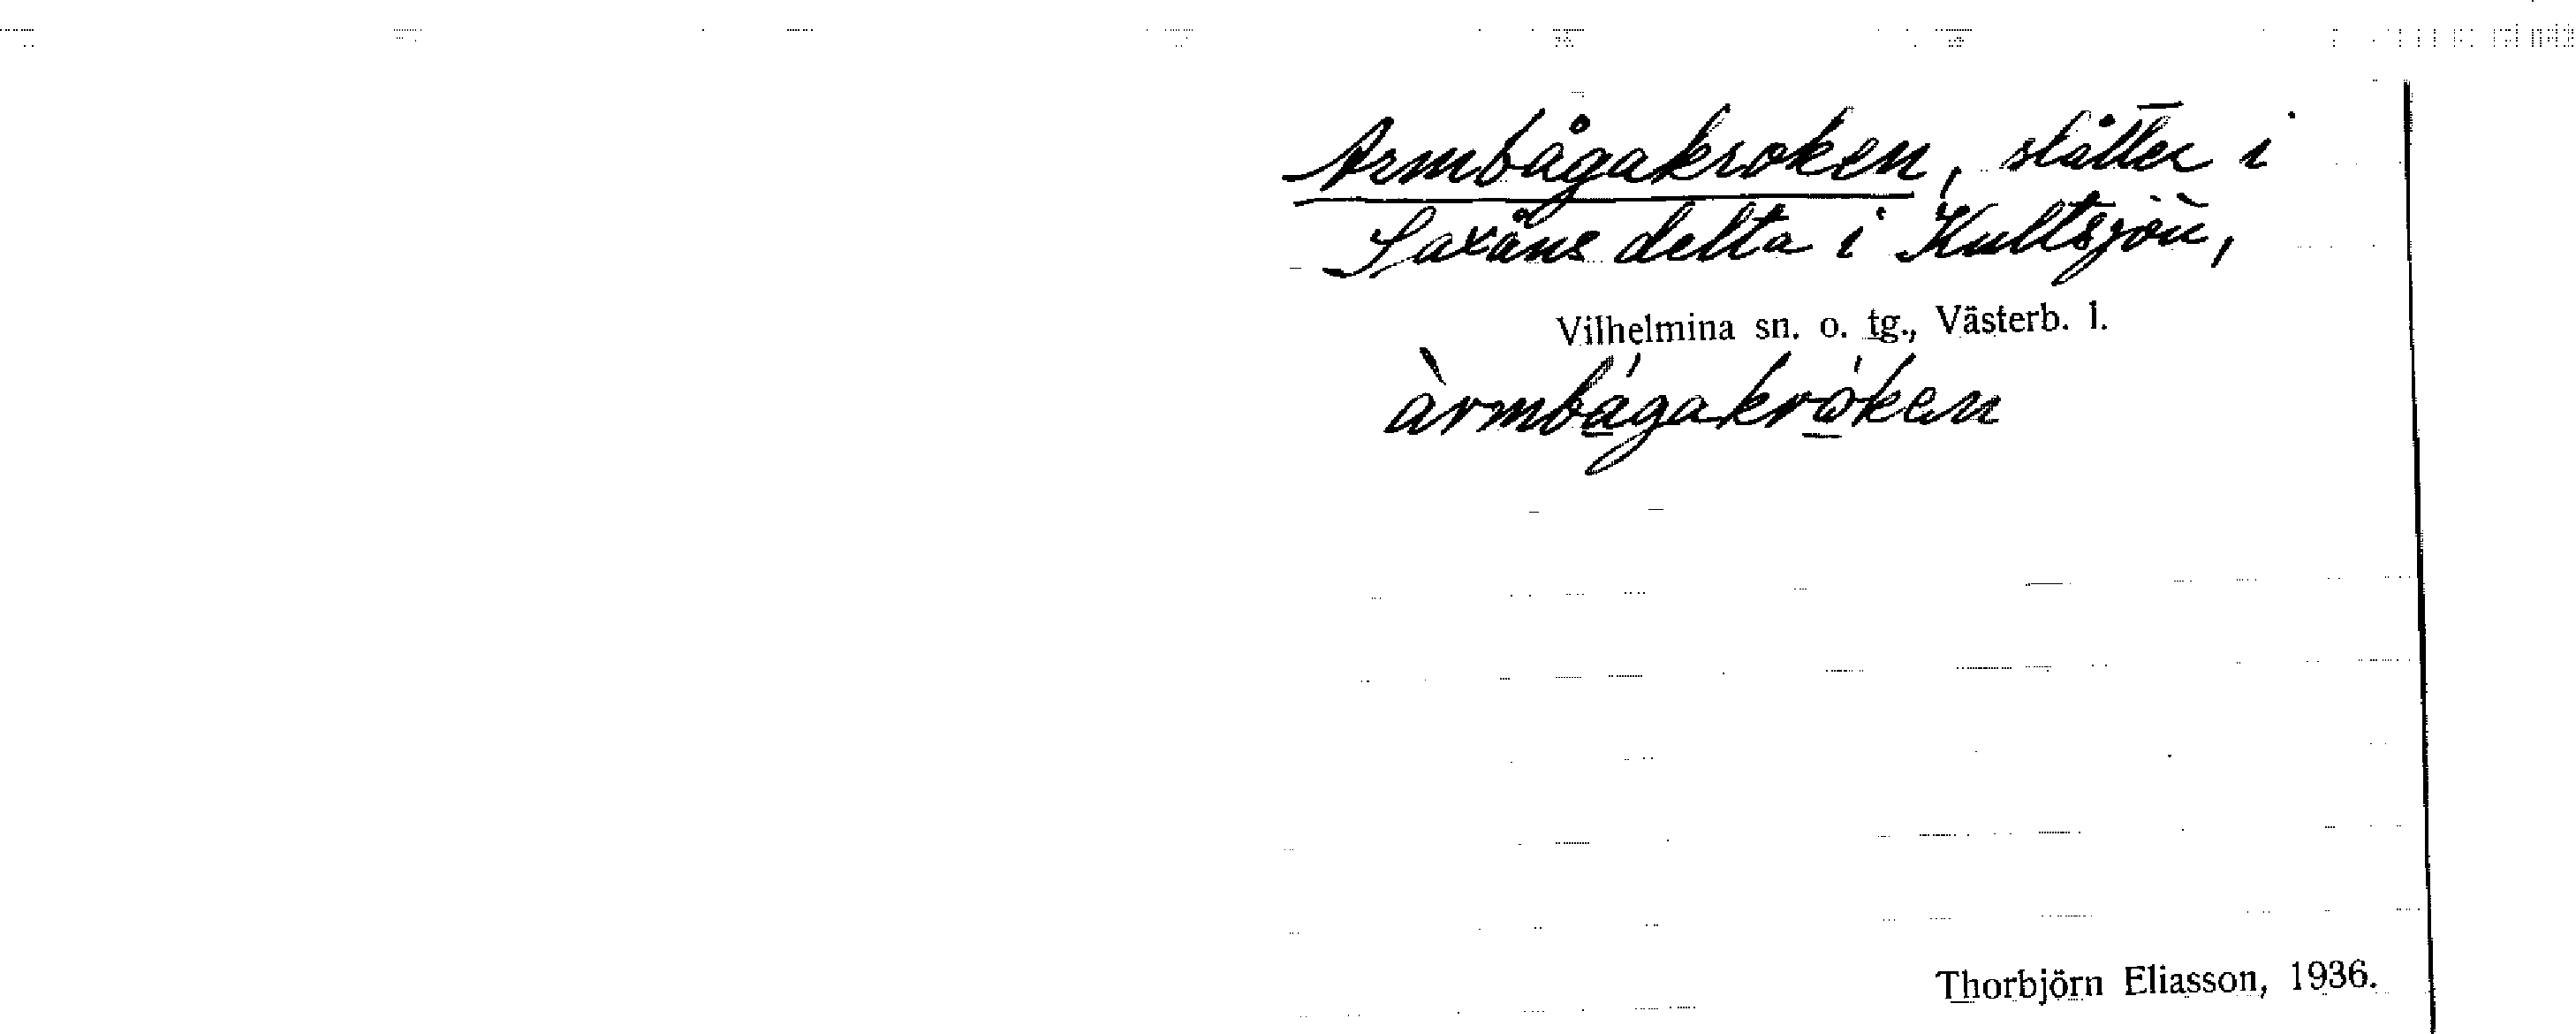 Armbågakroken, slåtter i
Saxåns delta i Kultsjön,
Vilhelmina sn. o. tg., Västerb. l.
àrmbágakrókan
Thorbjörn Eliasson, 1936.